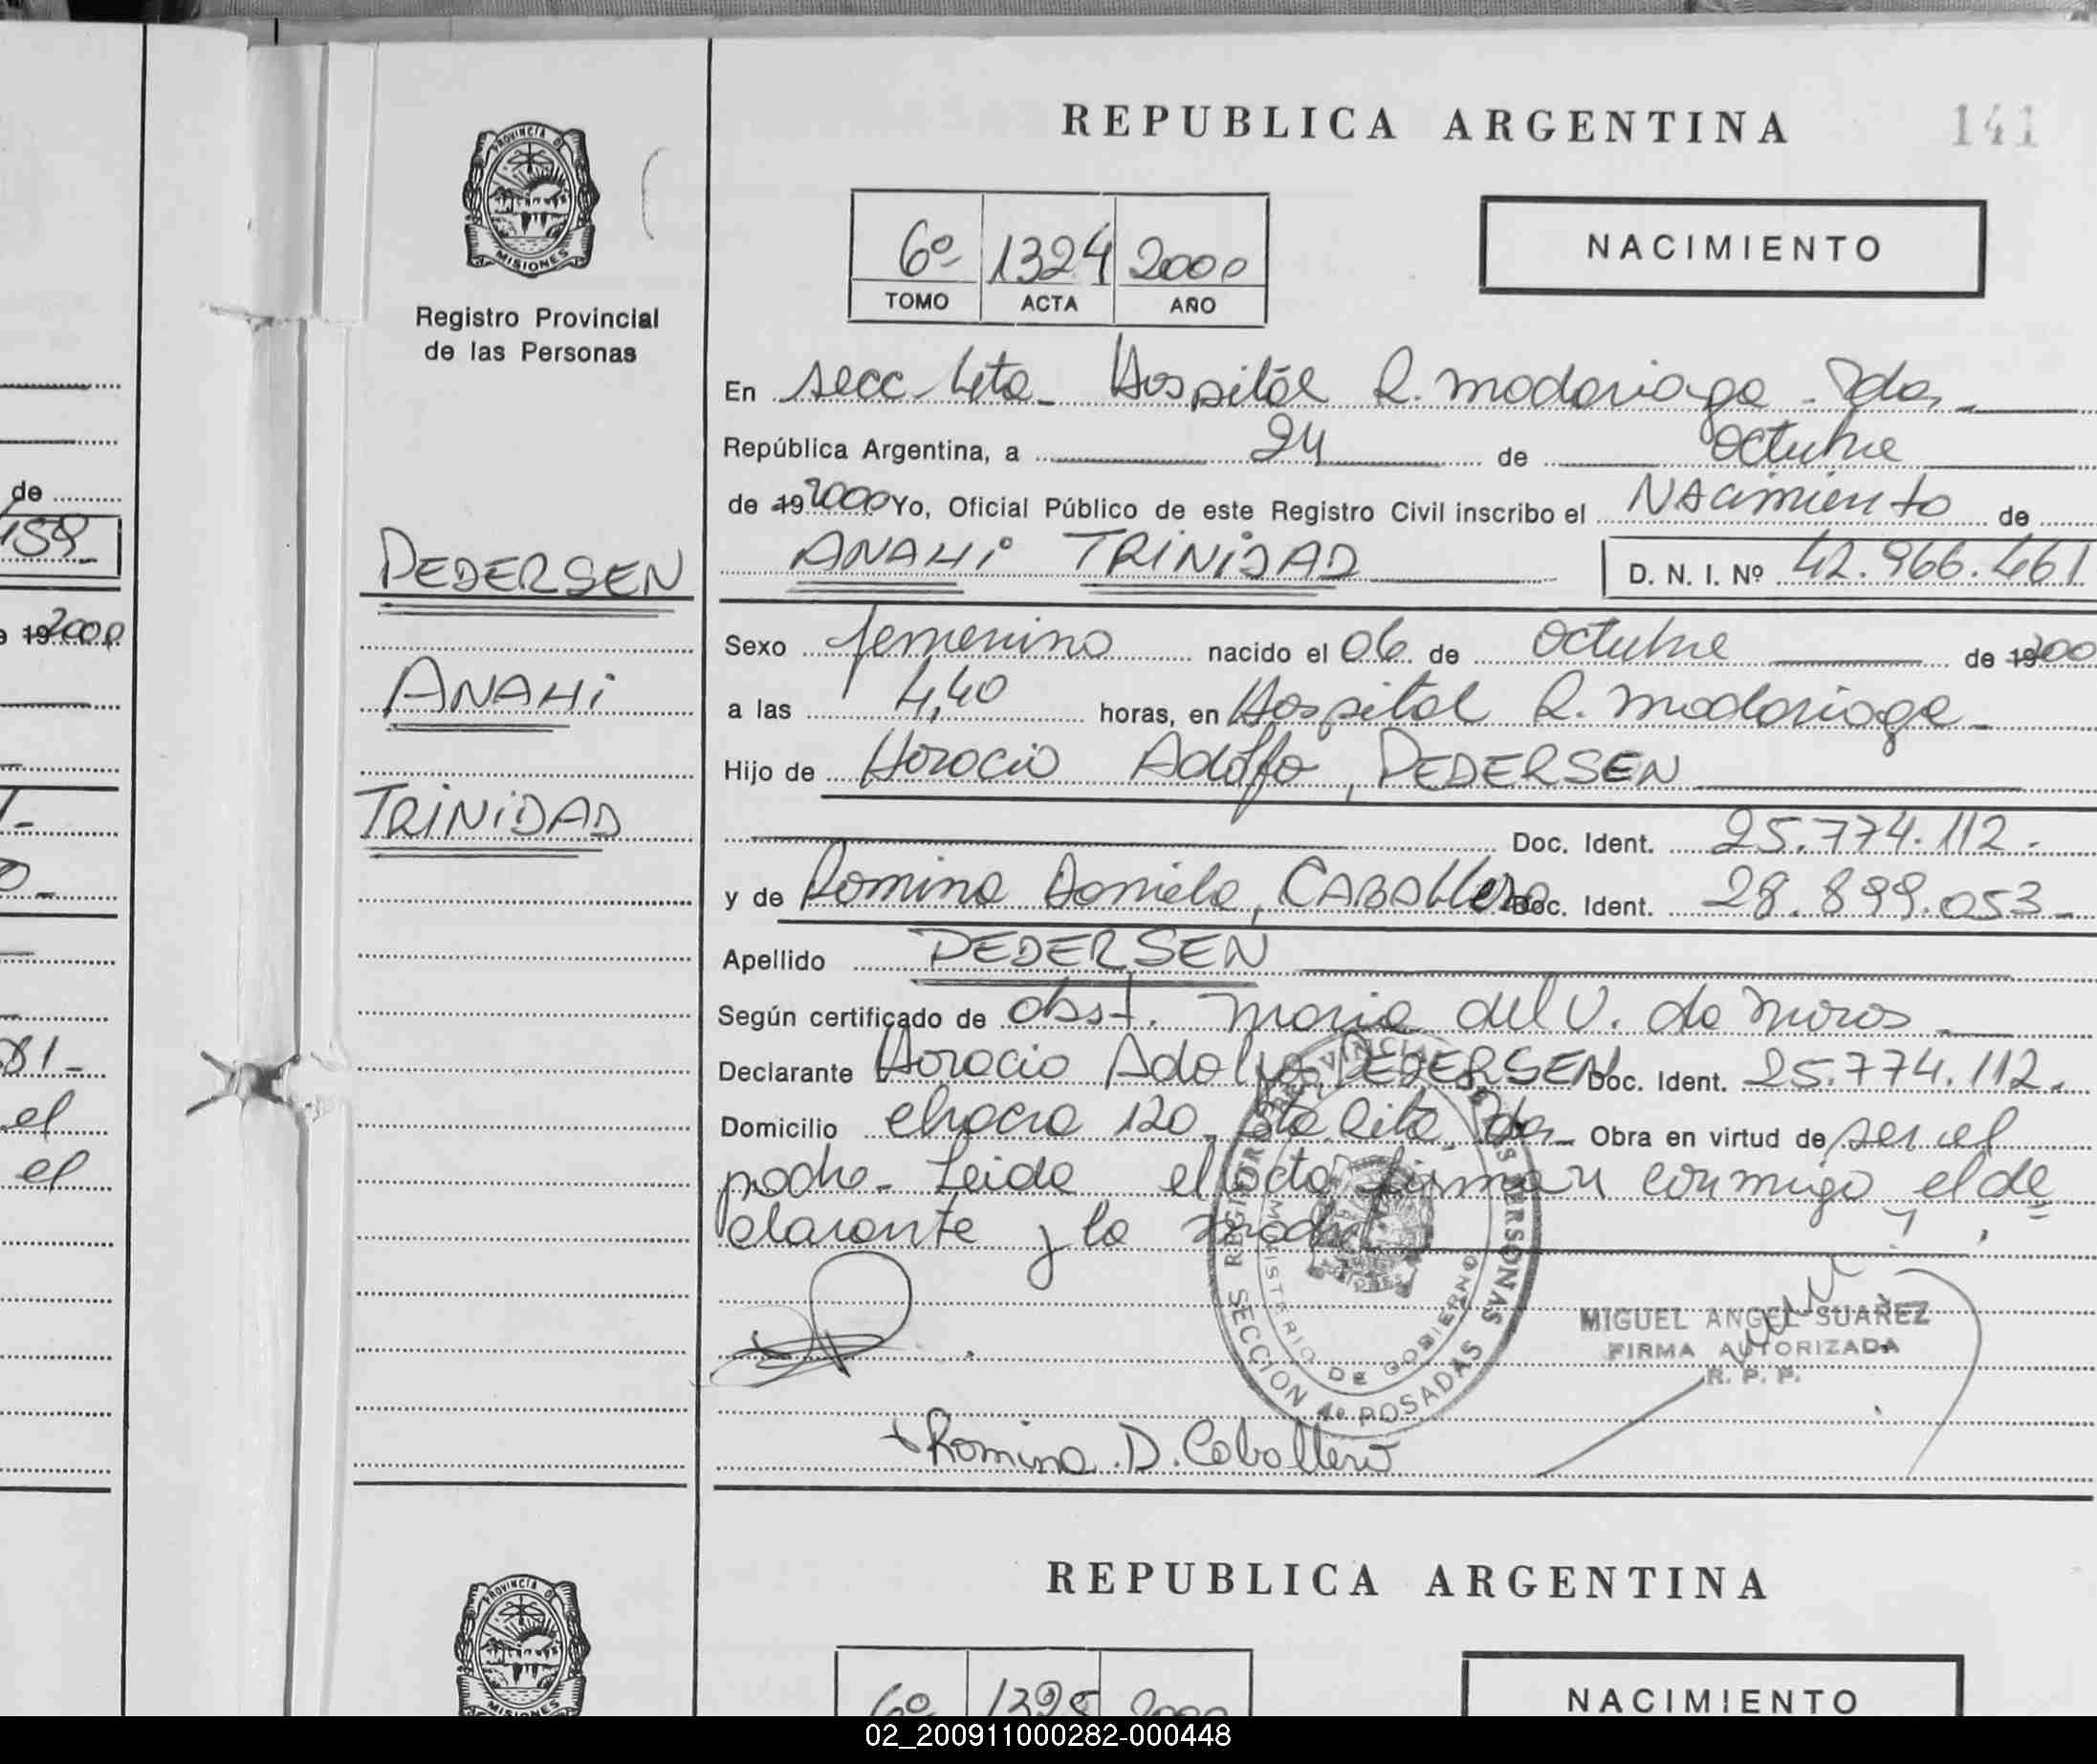 de
159-
19 2000
81-
el
el
PROVINCIA D
MISIONES
Registro Provincial
de las Personas
PEDERSEN
ANAHi
TRINIDAD
REPUBLICA ARGENTINA 141
6º 1324 2000
TOMO ACTA AÑO
NACIMIENTO
En secc 4ta - Hospital R. Madariaga - Pdas -
República Argentina, a 24 de Octubre
de 19 2000 Yo, Oficial Público de este Registro Civil inscribo el NAcimiento de
ANAHi TRINIDAD D. N. I. Nº 42.966.461
Sexo femenino nacido el 06 de Octubre de 19 200
a las 4,40 horas, en Hospital R. Madariaga -
Hijo de Horacio Adolfo, PEDERSEN
Doc. Ident. 25.774.112.-
y de Romina Daniela, CABALLero Doc. Ident. 28.899.053-
Apellido PEDERSEN
Según certificado de obst. Maria del V. de
Declarante Horacio Adolfo PEDERSEN Doc. Ident. 25.774.112.
Domicilio chacra 120, Sta Rita, Pdas - Obra en virtud de ser el
padre - Leida el acta firman conmigo el de
clarante y la madre
REGISTRO PROVINCIAL DE LAS PERSONAS
MINISTERIO DE GOBIERNO
SECCION 4a POSADAS
MIGUEL ANGEL SUAREZ
FIRMA AUTORIZADA
R. P. P.
Romina. D. Caballero
PROVINCIA D
MISIONES
REPUBLICA ARGENTINA
6º 1325 2000
NACIMIENTO
02_200911000282-000448